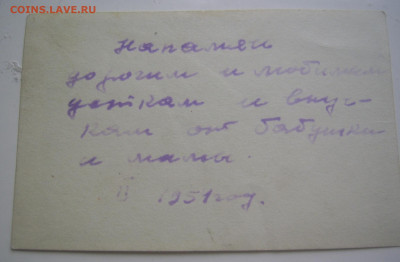 COINS.LAVE.RU
На память
дорогим и любимым
деткам и вну-
кам от бабушки
и мамы.
II 1951 год.